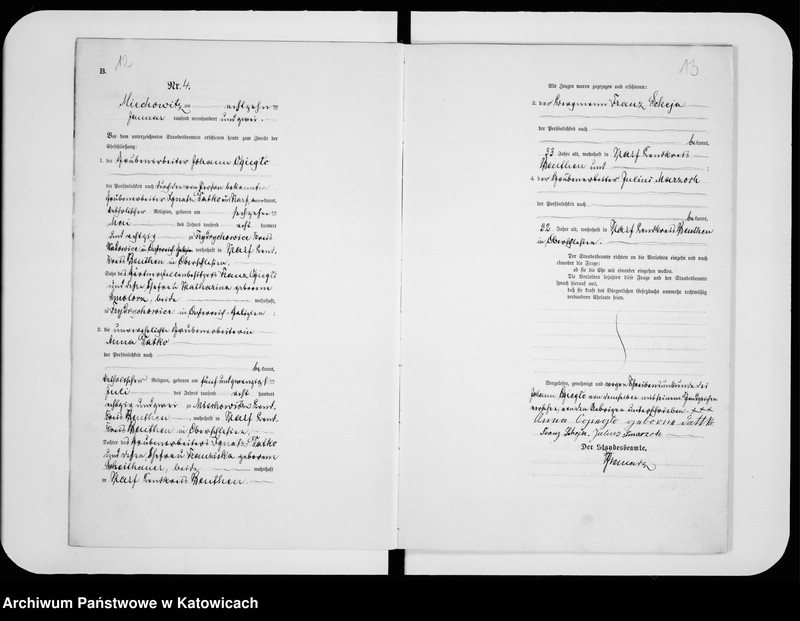 12
B.
Nr. 4.
Miechowitz am achtzehn
Januar tausend neunhundert und zwei.
Vor dem unterzeichneten Standesbeamten erschienen heute zum Zwecke der
Eheschließung:
1. der Grubenarbeiter Johann
der Persönlichkeit nach
Grubenarbeiter Ignatz
katholischer Religion, geboren am sechzehn
Mai des Jahres tausend acht hundert
und achtzig zu Kreis
wohnhaft in Karf Land-
kreis Beuthen in Oberschlesien
Sohn des Franz
und dessen Ehefrau Katharina geborene
beide wohnhaft
in
2. die unverehelichte Grubenarbeiterin
Anna
der Persönlichkeit nach
be kannt,
katholischer Religion, geboren am fünfundzwanzig
Juli des Jahres tausend acht hundert
achtzig und zwei zu Miechowitz Land-
kreis Beuthen, wohnhaft in Karf Land-
kreis Beuthen in Oberschlesien,
Tochter des Grubenarbeiters Ignatz
und dessen Ehefrau Franziska geborene
beide wohnhaft
in Karf Landkreis Beuthen
13
Als Zeugen waren zugezogen und erschienen:
3. der Bergmann Franz Scheja
der Persönlichkeit nach
be kannt,
33 Jahre alt, wohnhaft in Karf Landkreis
Beuthen und
4. der Grubenarbeiter Julius
der Persönlichkeit nach
be kannt,
32 Jahre alt, wohnhaft in Karf Landkreis Beuthen
in Oberschlesien.
Der Standesbeamte richtete an die Verlobten einzeln und nach
einander die Frage:
ob sie die Ehe mit einander eingehen wollen.
Die Verlobten bejahten diese Frage und der Standesbeamte
sprach hierauf aus,
daß sie kraft des Bürgerlichen Gesetzbuchs nunmehr rechtmäßig
verbundene Eheleute seien.
Vorgelesen, genehmigt und wegen Schreibensunkunde des
Johann von demselben mit seinem Handzeichen
versehen, von den Uebrigen unterschrieben. +++
Anna geborne
Franz Scheja. Julius
Der Standesbeamte.
Archiwum Państwowe w Katowicach